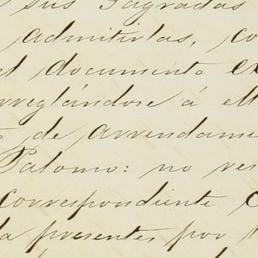 sus Sagradas
admitirlas, co
el documento ex
rreglándose á ell
de arrendame
Palomo: no res
correspondiente C
la presente, por